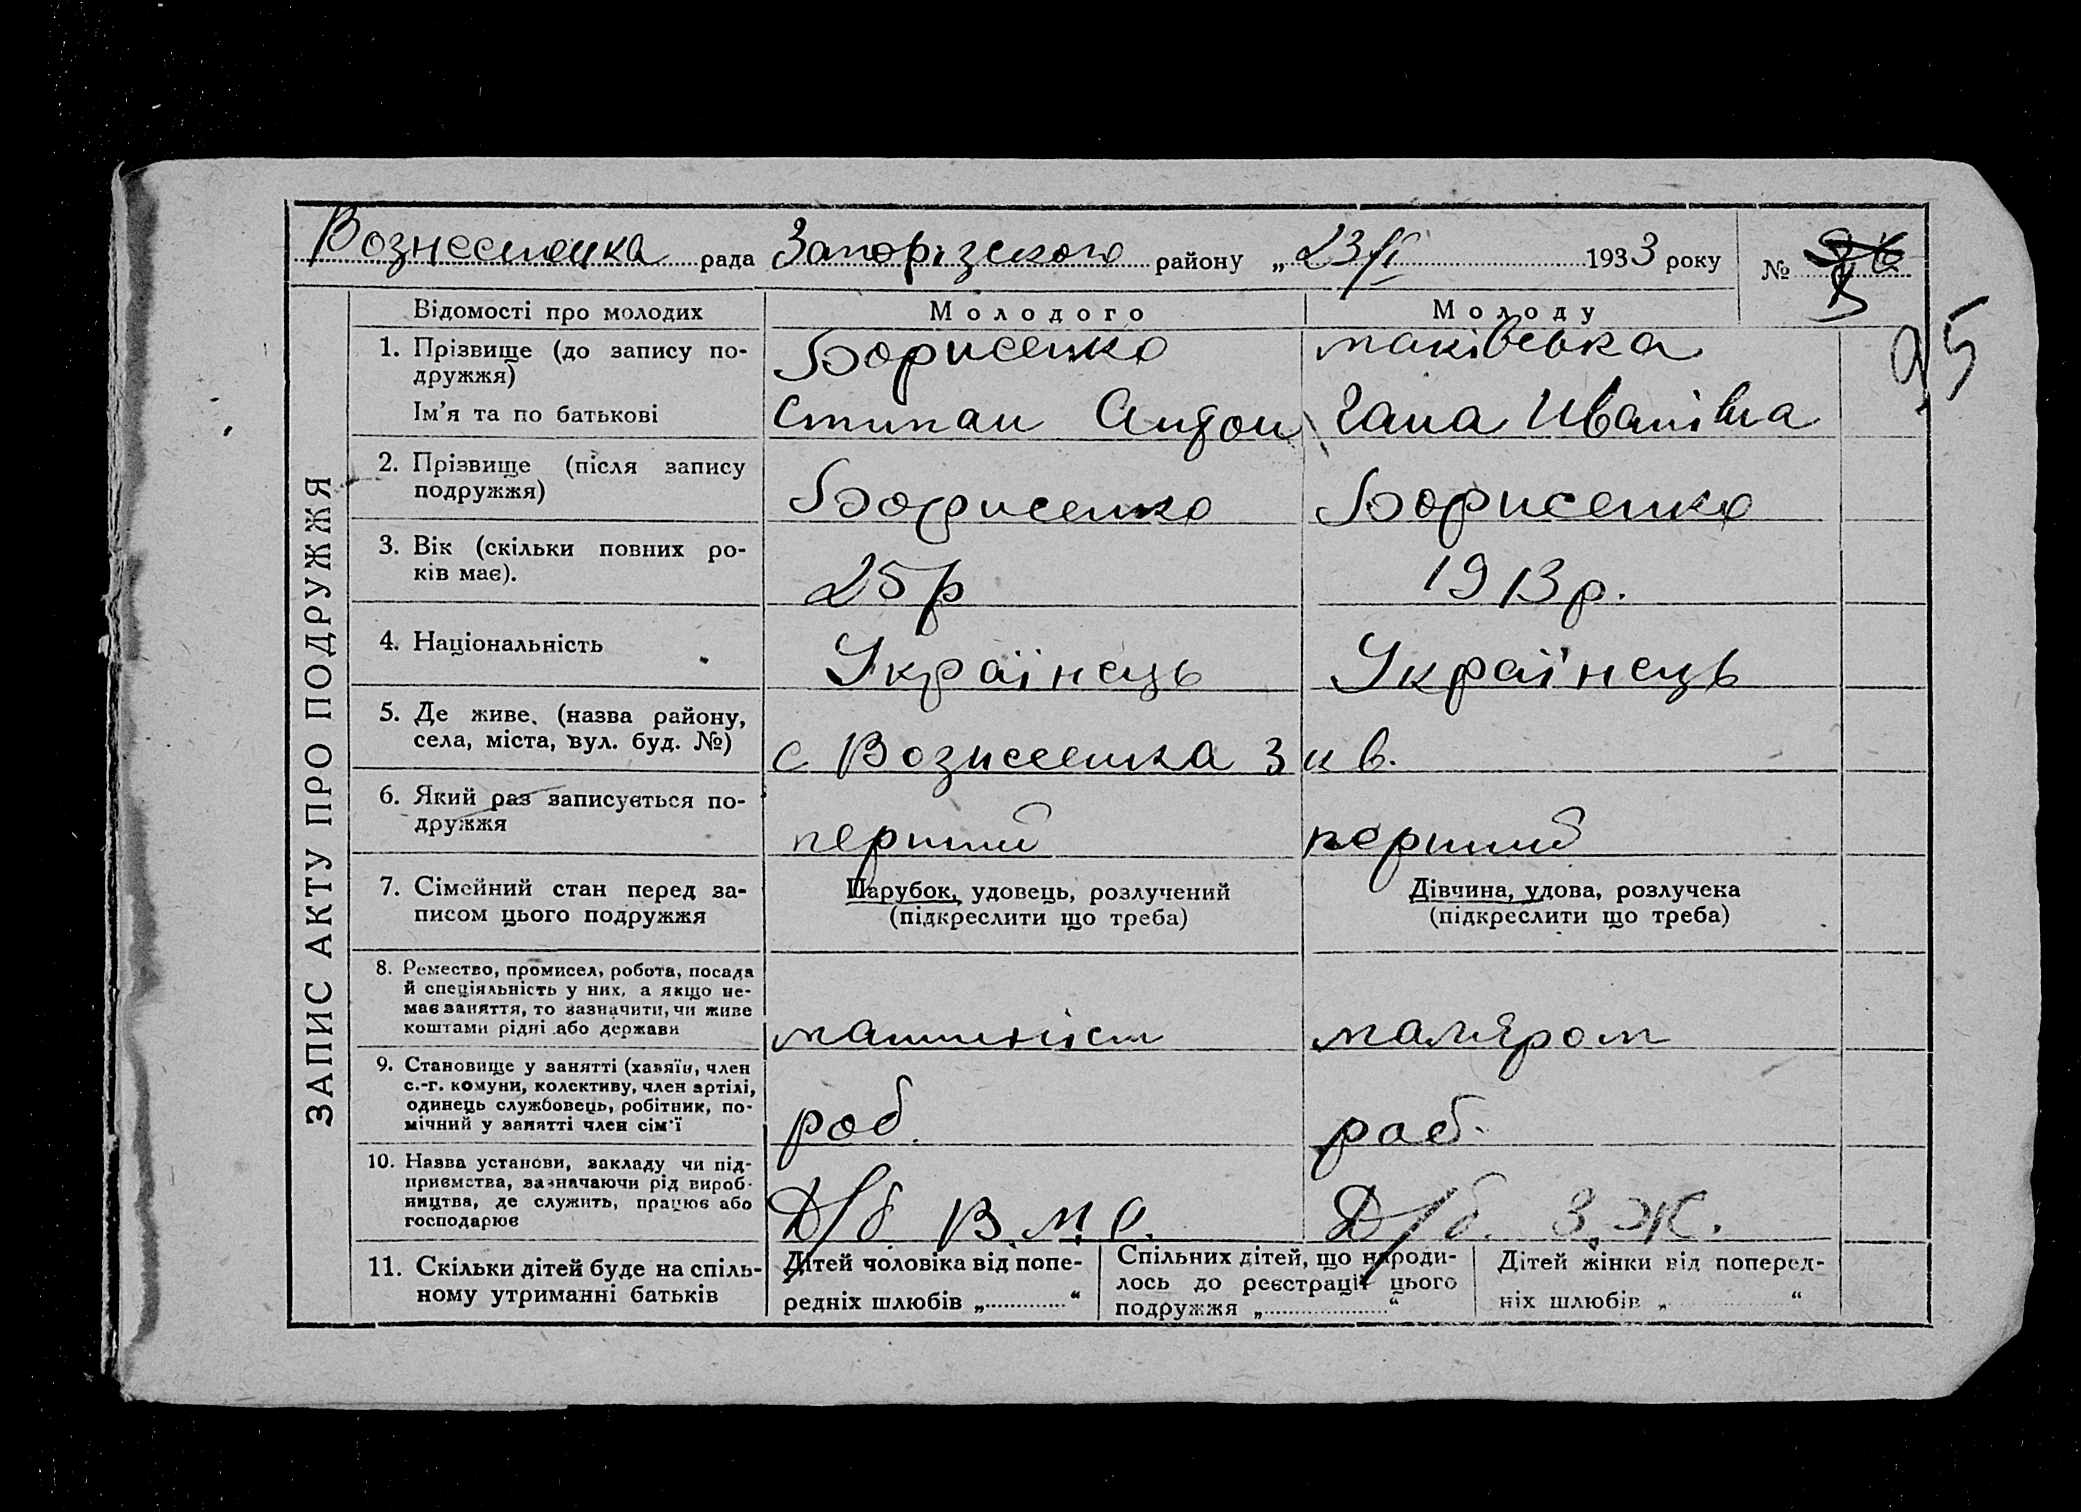 Вознесенка рада Запорізского району „23/VI 1933 року №
95
ЗАПИС АКТУ ПРО ПОДРУЖЖЯ
Відомості про молодих Молодого Молоду
1. Прізвище (до запису по-
дружжя) Борисенко маківська
Ім'я та по батькові Стипан Антон Гана Иванівна
2. Прізвище (після запису
подружжя) Борисенко Борисенко
3. Вік (скільки повних ро-
ків має). 25 р 1913 р.
4. Національність Українець Українець
5. Де живе. (назва району,
села, міста, вул. буд. №) с Вознесенка 3 кв.
6. Який раз записується по-
дружжя перший перший
7. Сімейний стан перед за-
писом цього подружжя
Парубок, удовець, розлучений
(підкреслити що треба)
Дівчина, удова, розлучека
(підкреслити що треба)
8. Ремество, промисел, робота, посада
й спеціяльність у них, а якщо не-
має заняття, то зазначити, чи живе
коштами рідні або держави машиніст маляром
9. Становище у занятті (хазяїн, член
с.-г. комуни, колективу, член артілі,
одинець службовець, робітник, по-
мічний у занятті член сім'ї роб. раб.
10. Назва установи, закладу чи під-
приємства, зазначаючи рід вироб-
ництва, де служить, працює або
господарює Д/б В.М.С. Д/б. З.Ж.
11. Скільки дітей буде на спіль-
ному утриманні батьків
Дітей чоловіка від попе-
редніх шлюбів „ “
Спільних дітей, що народи-
лось до реєстрації цього
подружжя „ “
Дітей жінки від поперед-
ніх шлюбів „ “